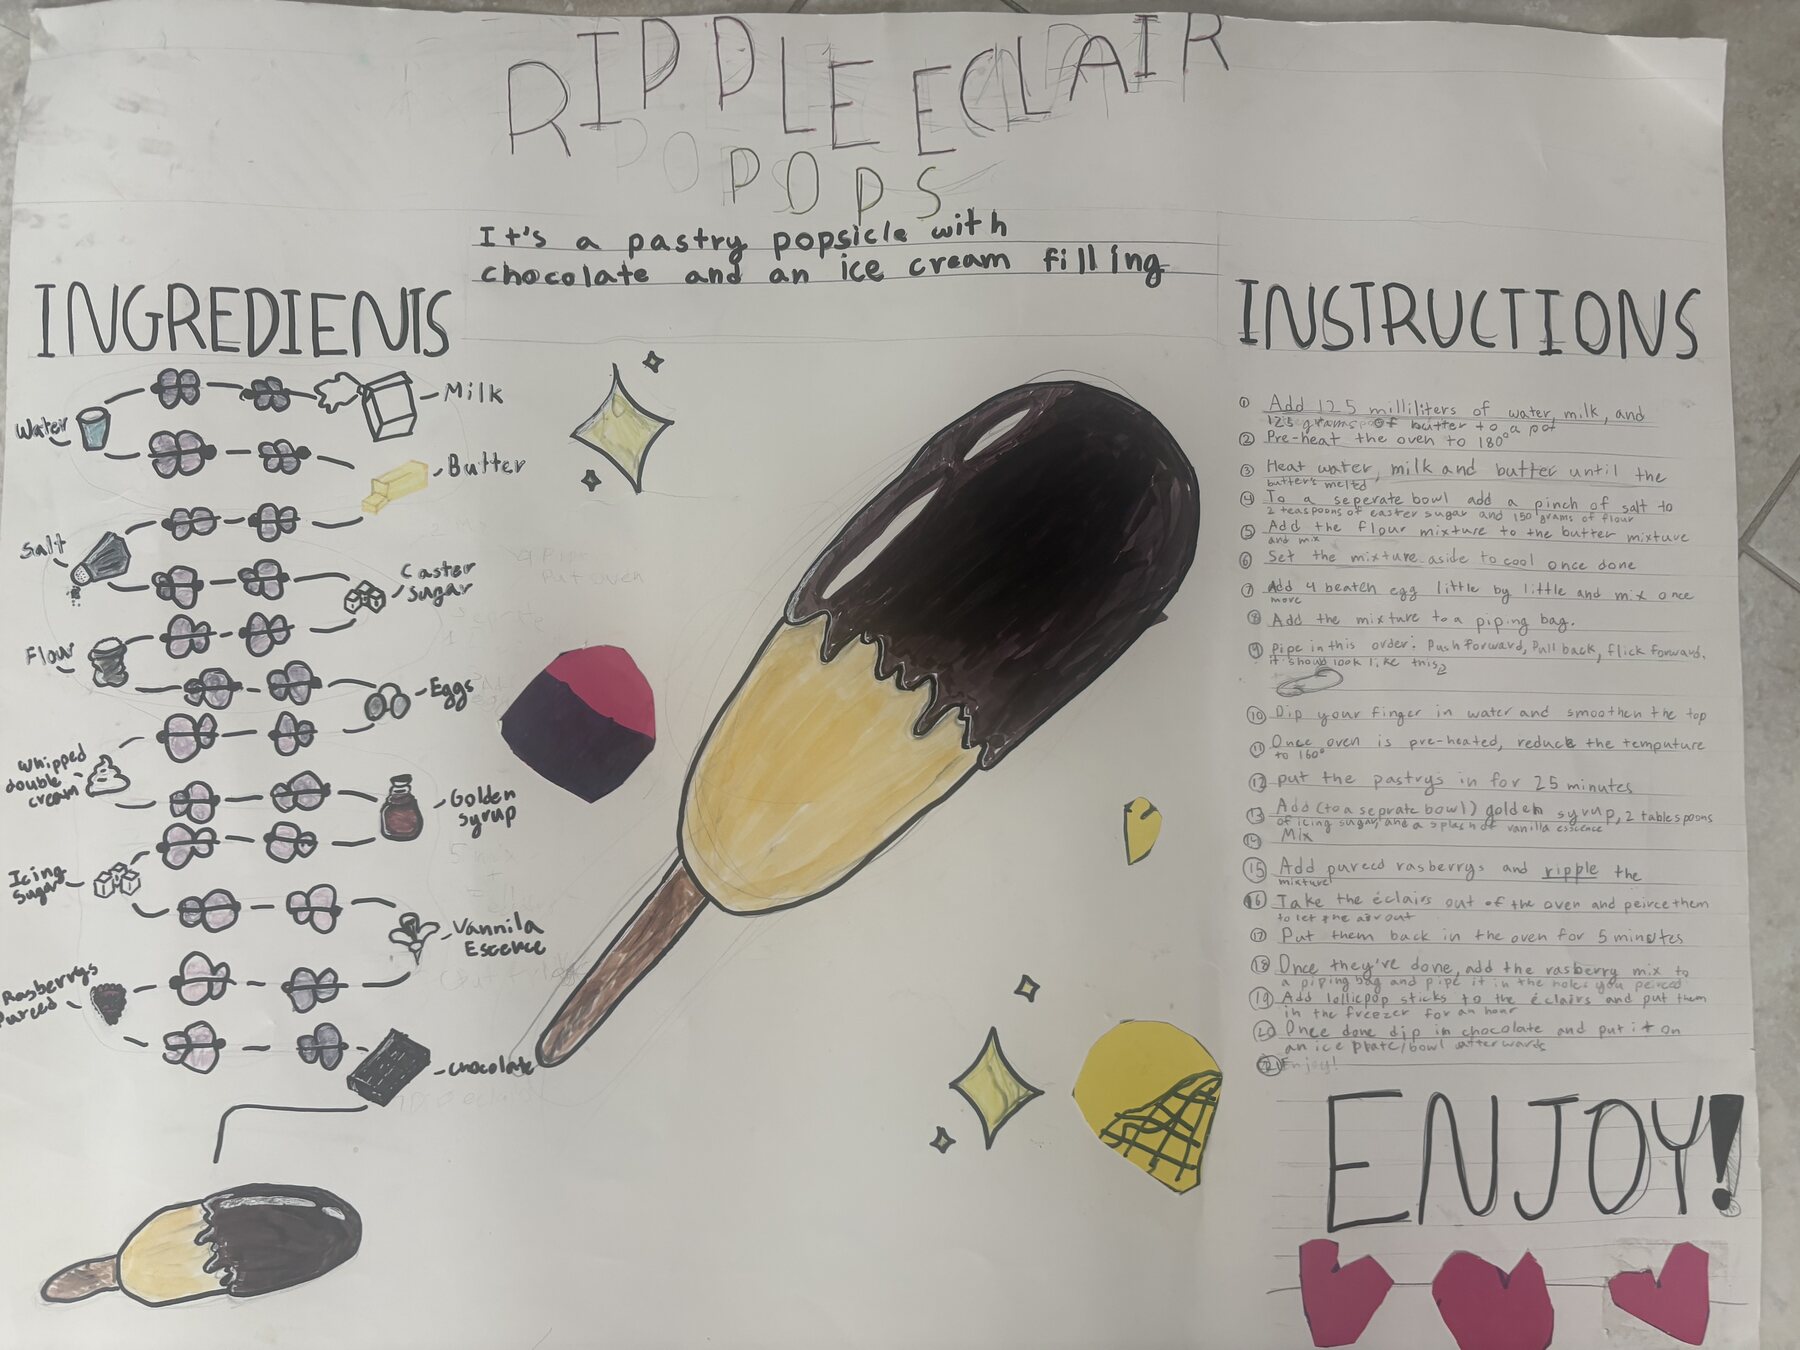 RIPPLE ECLAIR
POPS
It's a pastry popsicle with
chocolate and an ice cream filling
INGREDIENTS
Water
Milk
Butter
Salt
Caster
sugar
Flour
Eggs
Whipped
double
cream
Golden
syrup
Icing
Sugar
Vannila
Escence
Rasberrys
Pureed
chocolate
INSTRUCTIONS
① Add 125 milliliters of water, milk, and
125 grams of butter to a pot
② Pre-heat the oven to 180°
③ Heat water, milk and butter until the
butter's meltd
④ To a seperate bowl add a pinch of salt to
2 teaspoons of caster sugar and 150 grams of flour
⑤ Add the flour mixture to the butter mixture
and mix
⑥ Set the mixture aside to cool once done
⑦ Add 4 beaten egg little by little and mix once
more
⑧ Add the mixture to a piping bag.
⑨ Pipe in this order: Push forward, Pull back, flick forward.
it shoud look like this
⑩ Dip your finger in water and smoothen the top
⑪ Once oven is pre-heated, reduce the temputure
to 160°
⑫ put the pastrys in for 25 minutes
⑬ Add (to a seprate bowl) golden syrup, 2 tablespoons
of icing sugar, and a splash of vanilla esscence
⑭ Mix
⑮ Add pureed rasberrys and ripple the
mixture!
⑯ Take the éclairs out of the oven and peirce them
to let the air out
⑰ Put them back in the oven for 5 minutes
⑱ Once they're done, add the rasberry mix to
a piping bag and pipe it in the holes you peirced
⑲ Add lollicpop sticks to the éclairs and put them
in the freezer for an hour
⑳ Once done dip in chocolate and put it on
an ice plate/bowl afterwards
㉑ Enjoy!
ENJOY!